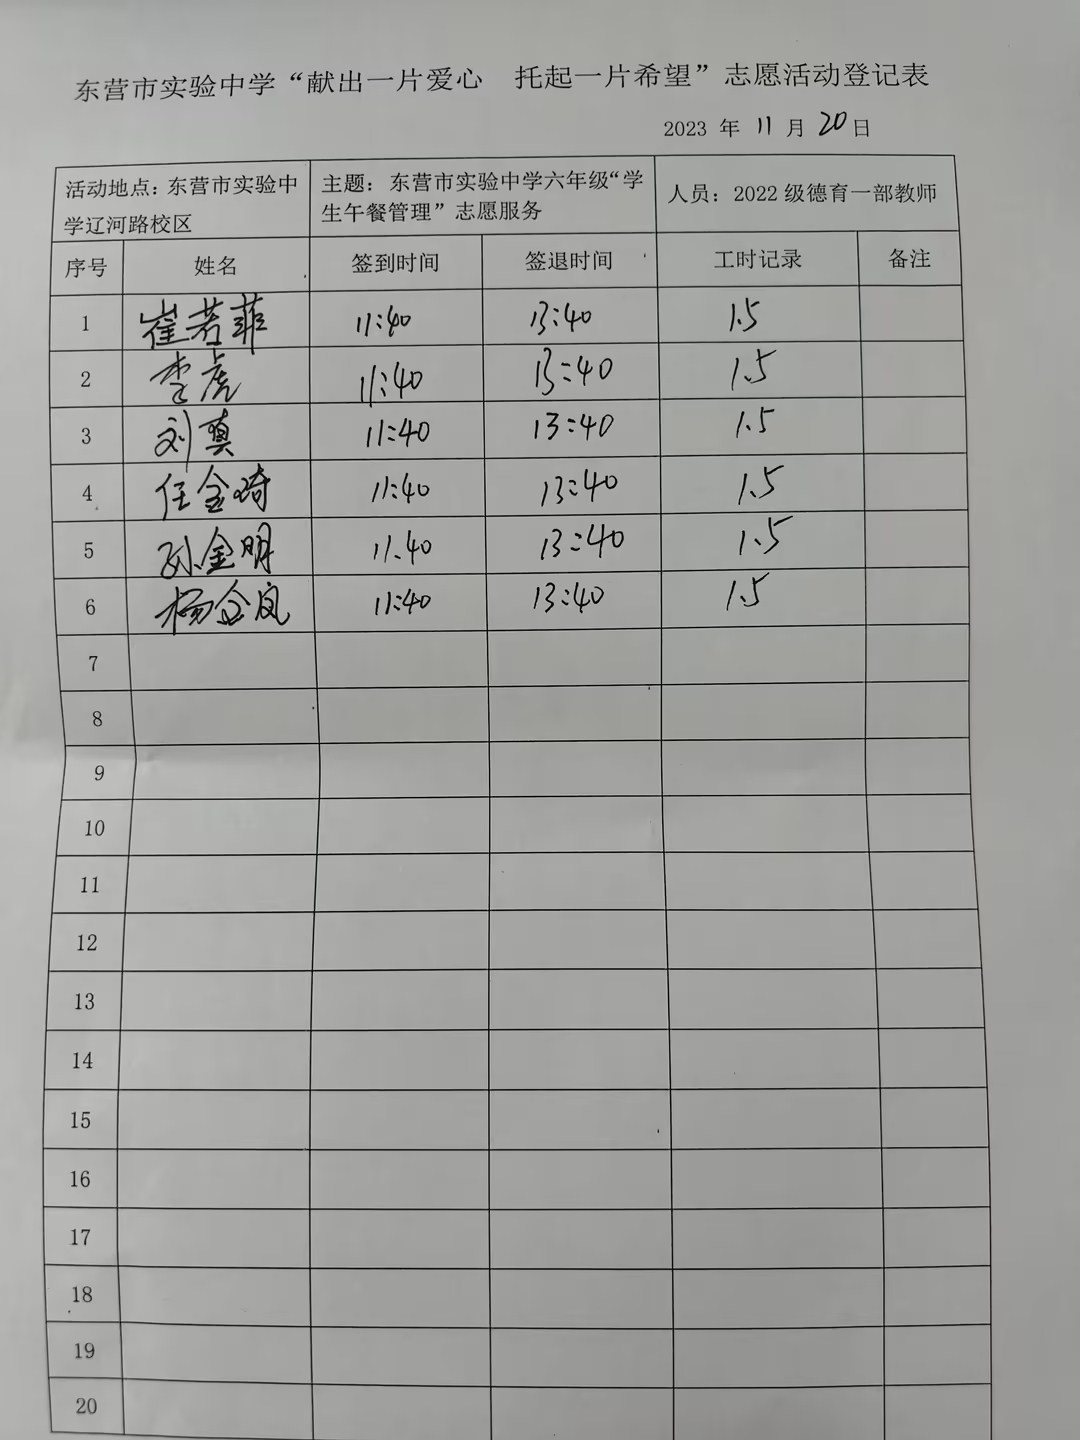 东营市实验中学“献出一片爱心 托起一片希望”志愿活动登记表
2023 年 11 月 20 日
活动地点：东营市实验中学辽河路校区 主题：东营市实验中学六年级“学生午餐管理”志愿服务 人员：2022 级德育一部教师
序号 姓名 签到时间 签退时间 工时记录 备注
1 崔若菲 11:40 13:40 1.5
2 李虎 11:40 13:40 1.5
3 刘真 11:40 13:40 1.5
4 任金琦 11:40 13:40 1.5
5 孙金明 11.40 13:40 1.5
6 杨金凤 11:40 13:40 1.5
7
8
9
10
11
12
13
14
15
16
17
18
19
20